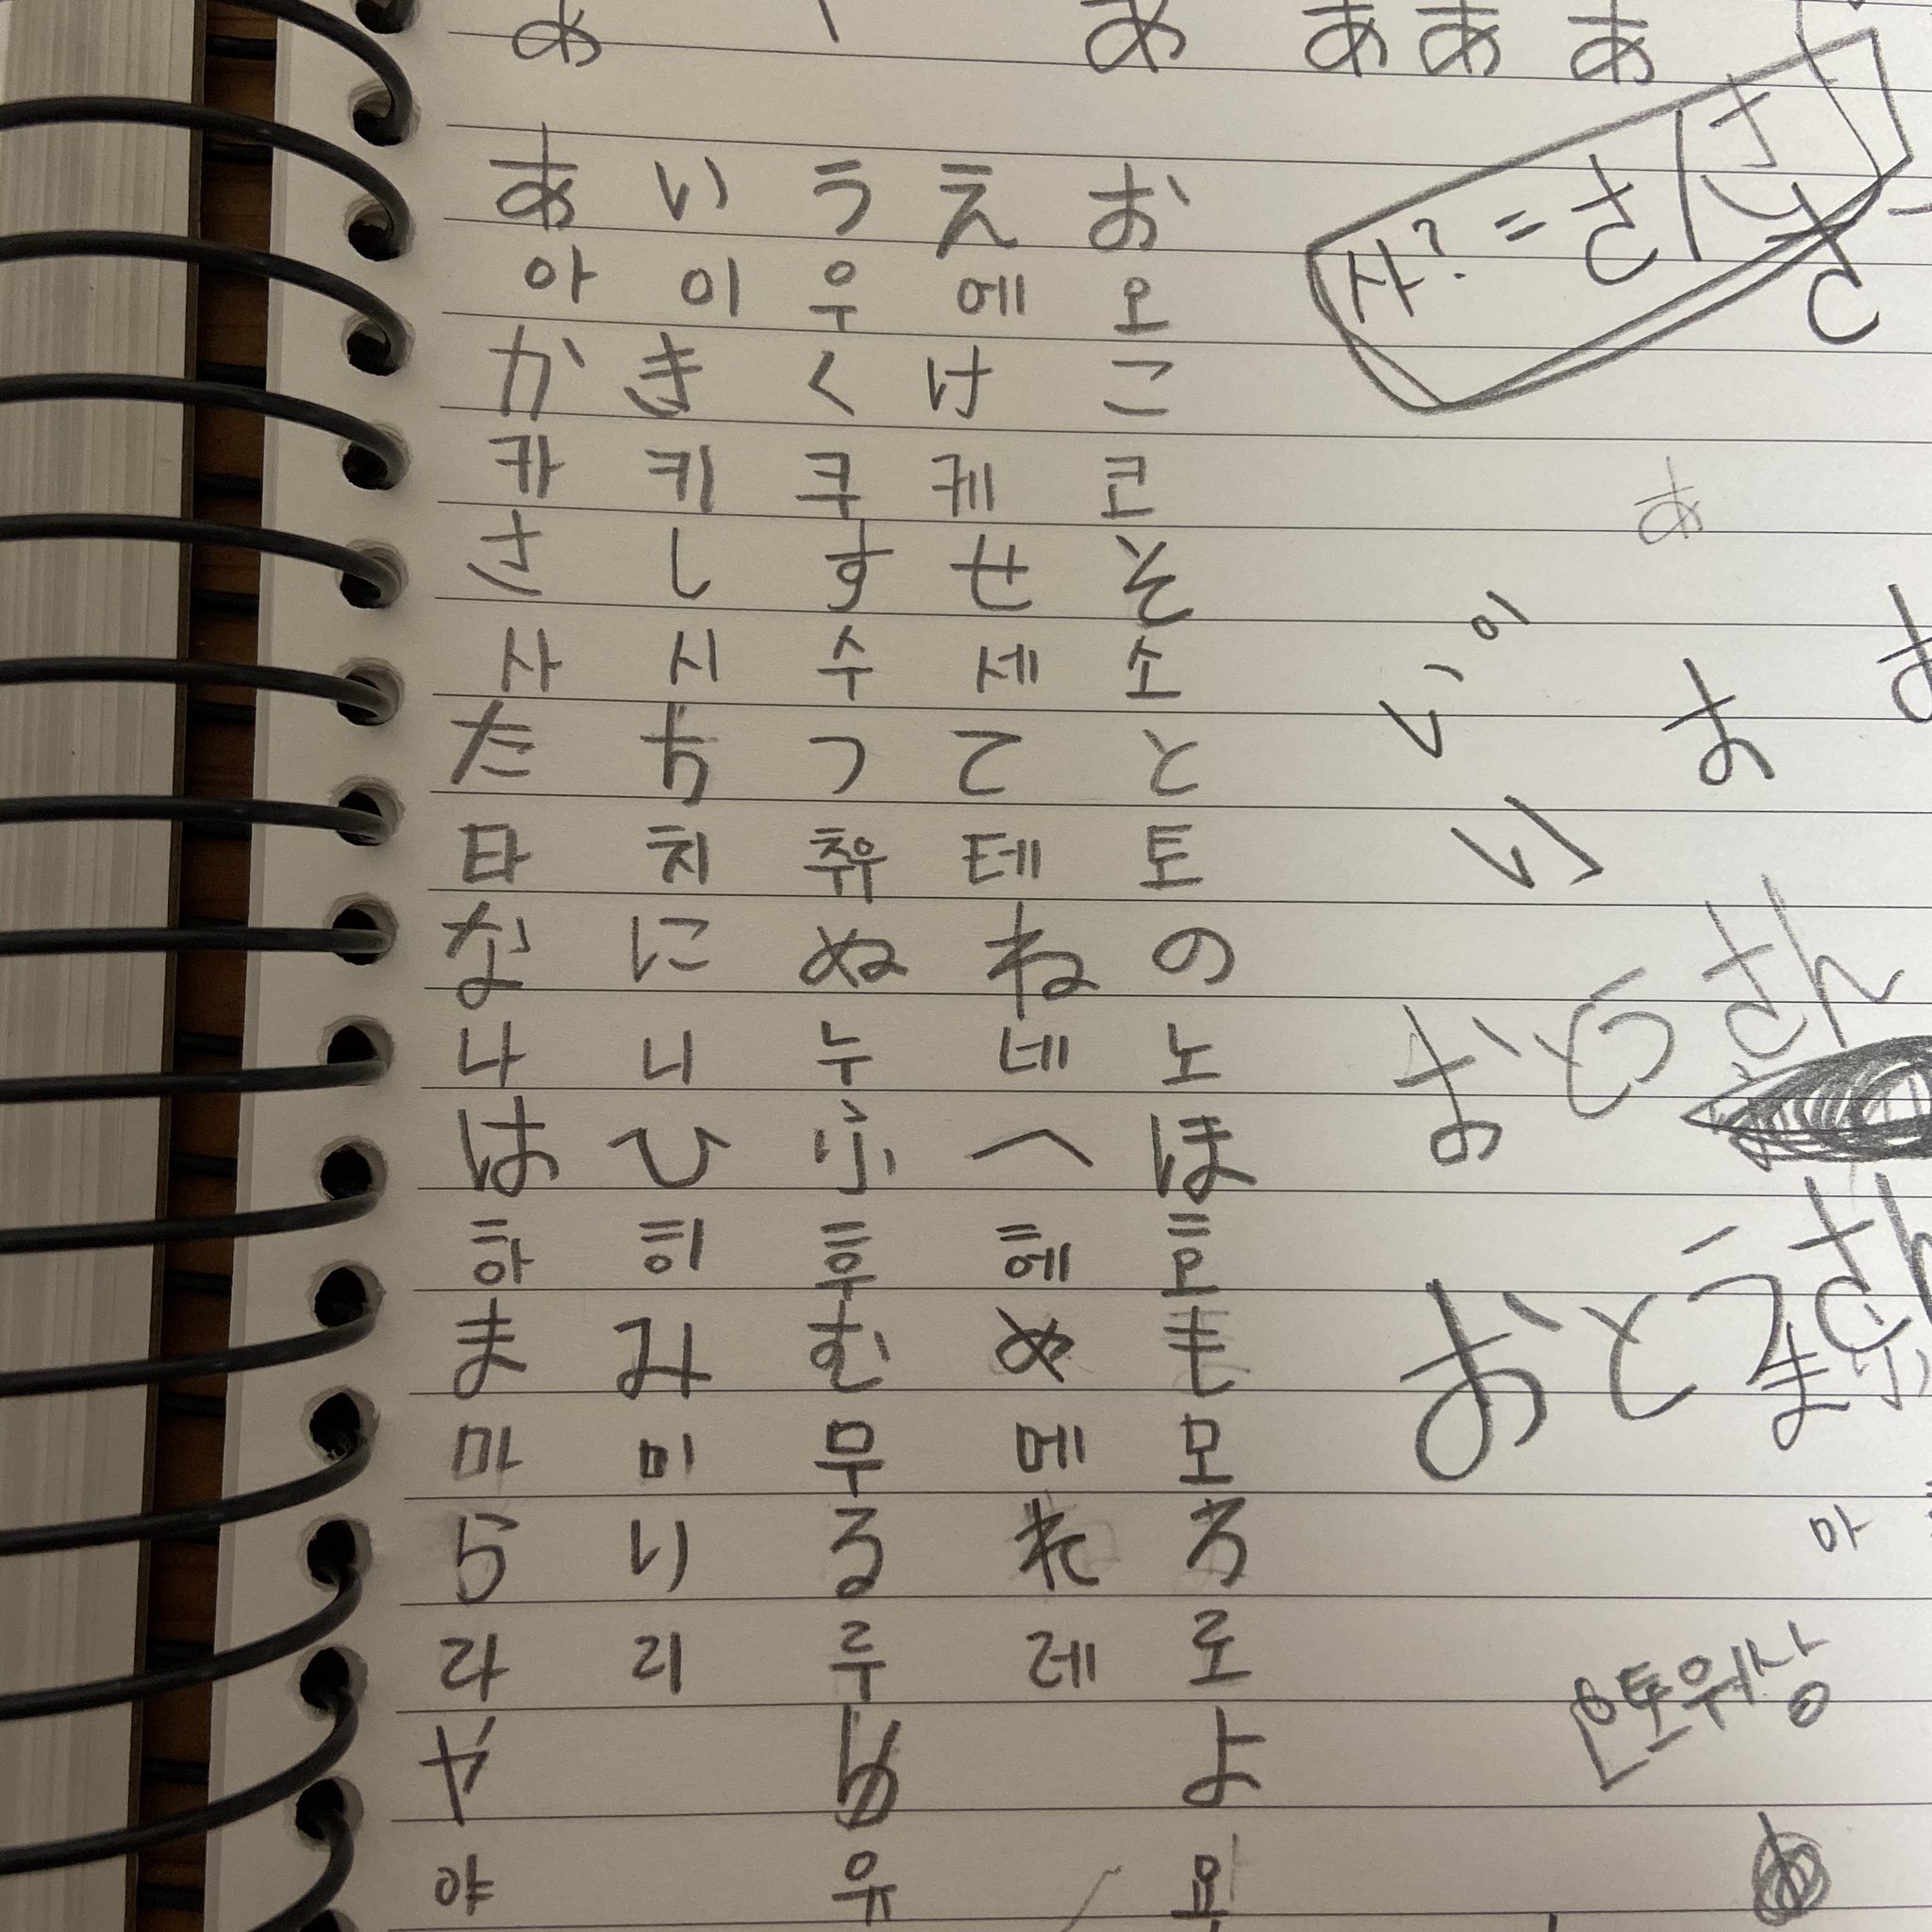 あ あ あ あ あ
あ い う え お
아 이 우 에 오
사? = さ
か き く け こ
카 키 쿠 케 코
あ
さ し す せ そ
이
사 시 수 세 소
い お
た ち つ て と
타 치 츄우 테 토
い
な に ぬ ね の
おとうさん
나 니 누 네 노
は ひ ふ へ ほ
하 히 후 헤 호
おとうさん
ま み む め も
ま ふ
마 미 무 메 모
마
ら り る れ ろ
라 리 루 레 로
오토워상
や ゆ よ
야 유 요